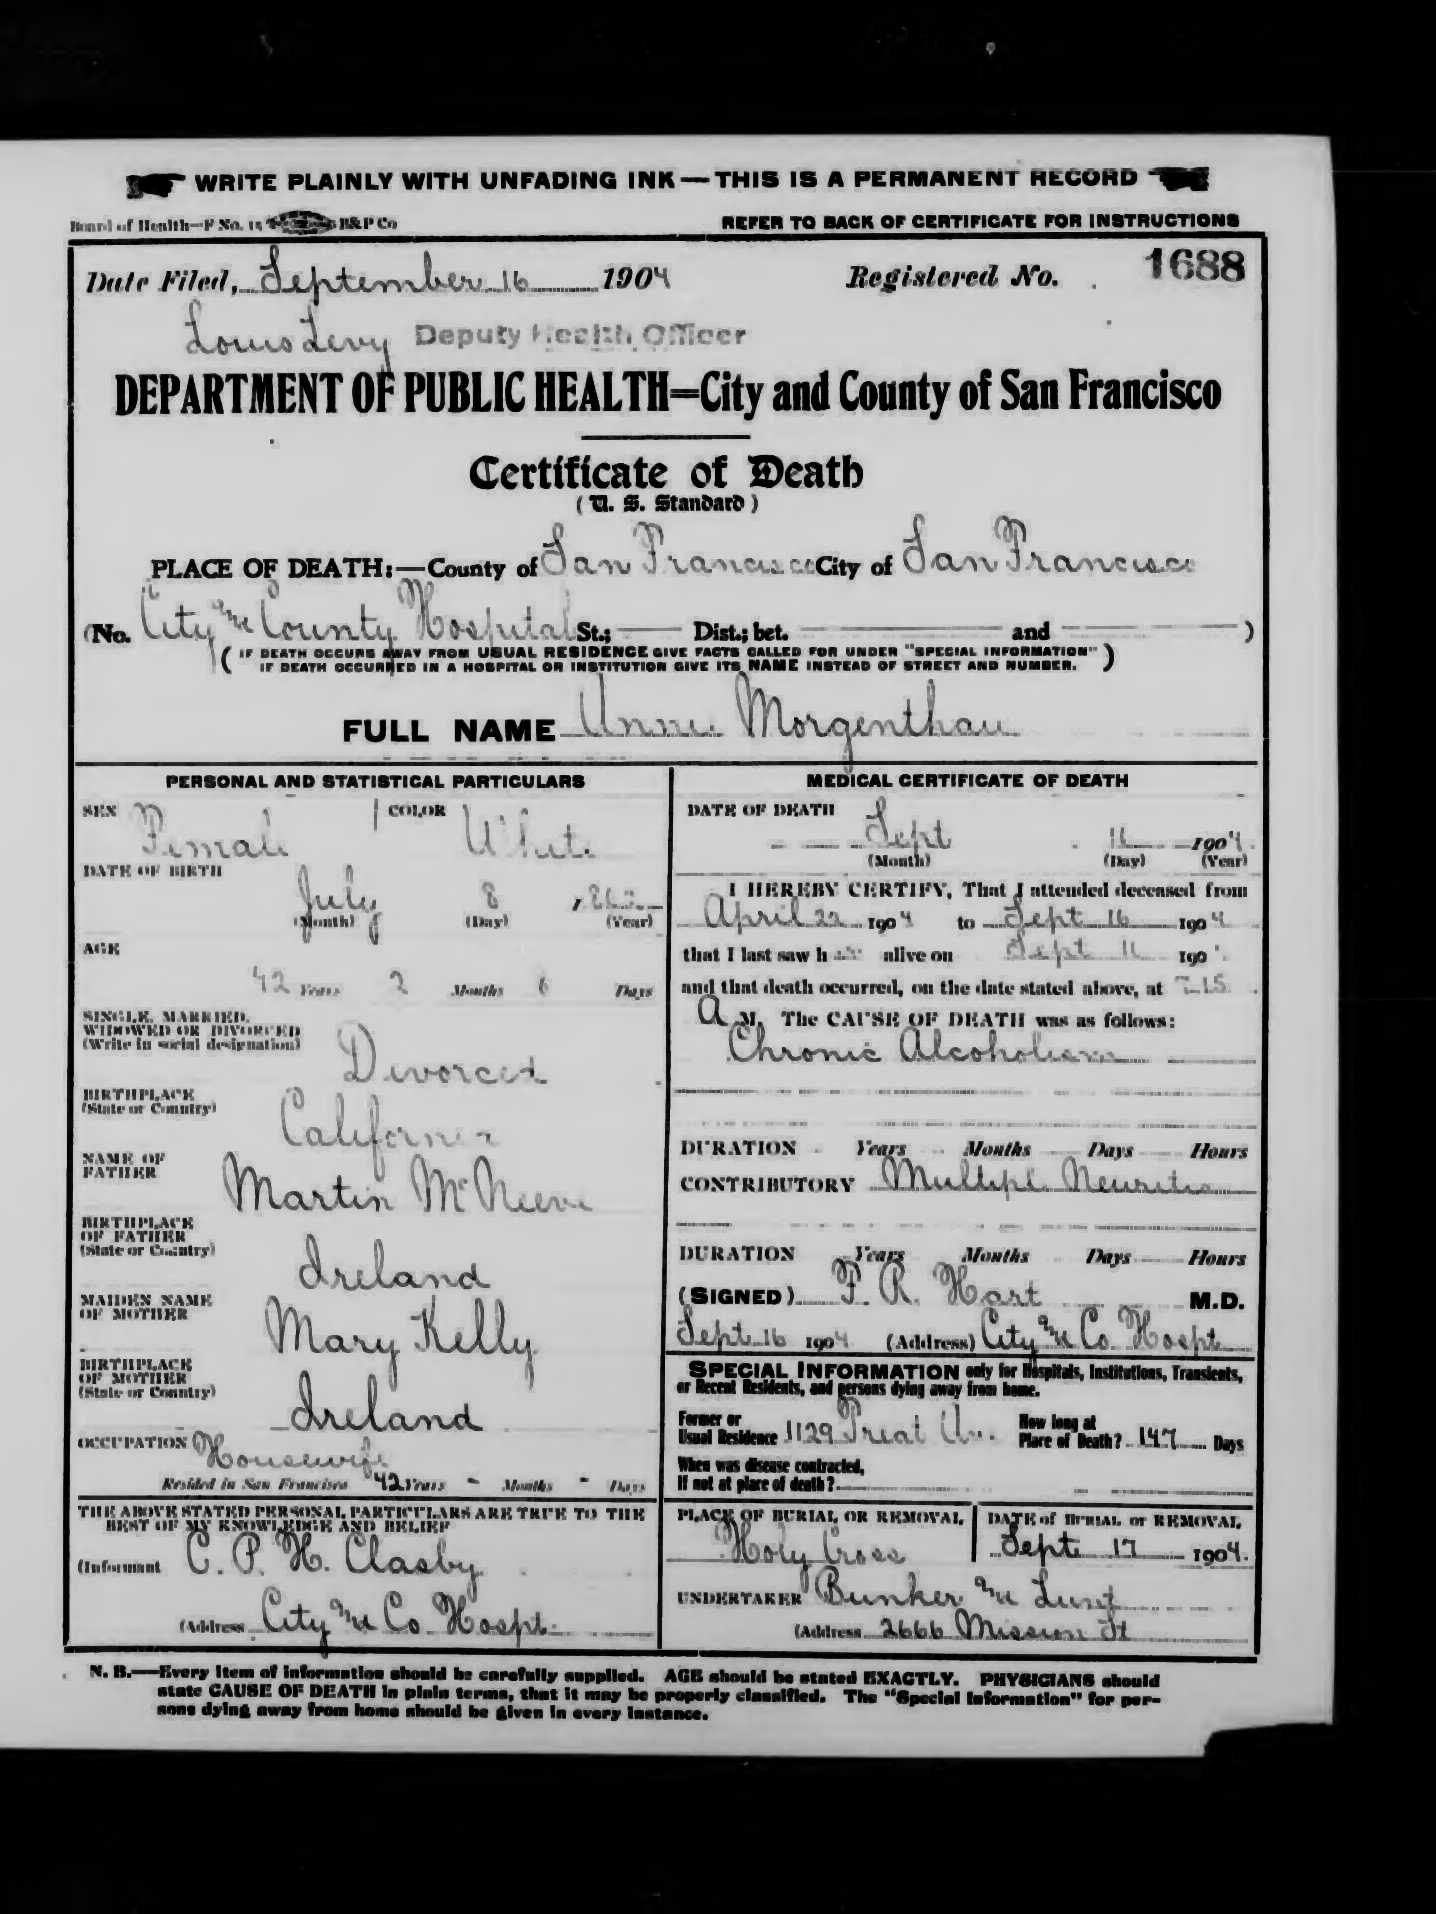 WRITE PLAINLY WITH UNFADING INK—THIS IS A PERMANENT RECORD
Board of Health—F No. 15 B&P Co REFER TO BACK OF CERTIFICATE FOR INSTRUCTIONS
Date Filed, September 16 1904 Registered No. 1688
Louis Levy Deputy Health Officer
DEPARTMENT OF PUBLIC HEALTH=City and County of San Francisco
Certificate of Death
(U. S. Standard)
PLACE OF DEATH:—County of San Francisco City of San Francisco
(No. City and County Hospital St.; Dist.; bet. and )
(IF DEATH OCCURS AWAY FROM USUAL RESIDENCE GIVE FACTS CALLED FOR UNDER "SPECIAL INFORMATION"
IF DEATH OCCURRED IN A HOSPITAL OR INSTITUTION GIVE ITS NAME INSTEAD OF STREET AND NUMBER.)
FULL NAME Annie Morgenthau
PERSONAL AND STATISTICAL PARTICULARS
SEX Female COLOR White
DATE OF BIRTH
July 8
(Month) (Day) (Year)
AGE
42 Years 2 Months 8 Days
SINGLE, MARRIED,
WIDOWED OR DIVORCED
(Write in social designation)
Divorced
BIRTHPLACE
(State or Country)
California
NAME OF
FATHER
Martin McNeeve
BIRTHPLACE
OF FATHER
(State or Country)
Ireland
MAIDEN NAME
OF MOTHER
Mary Kelly
BIRTHPLACE
OF MOTHER
(State or Country)
Ireland
OCCUPATION Housewife
Resided in San Francisco 42 Years - Months - Days
THE ABOVE STATED PERSONAL PARTICULARS ARE TRUE TO THE
BEST OF MY KNOWLEDGE AND BELIEF
(Informant C. P. H. Clasby
(Address City and Co Hospt.
MEDICAL CERTIFICATE OF DEATH
DATE OF DEATH
Sept 16 1904
(Month) (Day) (Year)
I HEREBY CERTIFY, That I attended deceased from
April 22 1904 to Sept 16 1904
that I last saw h er alive on Sept 16 190
and that death occurred, on the date stated above, at 7.15
A M. The CAUSE OF DEATH was as follows:
Chronic Alcoholism
DURATION Years Months Days Hours
CONTRIBUTORY Multiple Neuritis
DURATION Years Months Days Hours
(SIGNED) F. R. Hart M.D.
Sept 16 1904 (Address) City and Co. Hospt
SPECIAL INFORMATION only for Hospitals, Institutions, Transients,
or Recent Residents, and persons dying away from home.
Former or
Usual Residence 1129 Treat Av. How long at
Place of Death? 147 Days
When was disease contracted,
If not at place of death?
PLACE OF BURIAL OR REMOVAL DATE of BURIAL or REMOVAL
Holy Cross Sept 17 1904.
UNDERTAKER Bunker and Lunt
(Address 2666 Mission St
N. B.—Every item of information should be carefully supplied. AGE should be stated EXACTLY. PHYSICIANS should
state CAUSE OF DEATH in plain terms, that it may be properly classified. The "Special Information" for per-
sons dying away from home should be given in every instance.